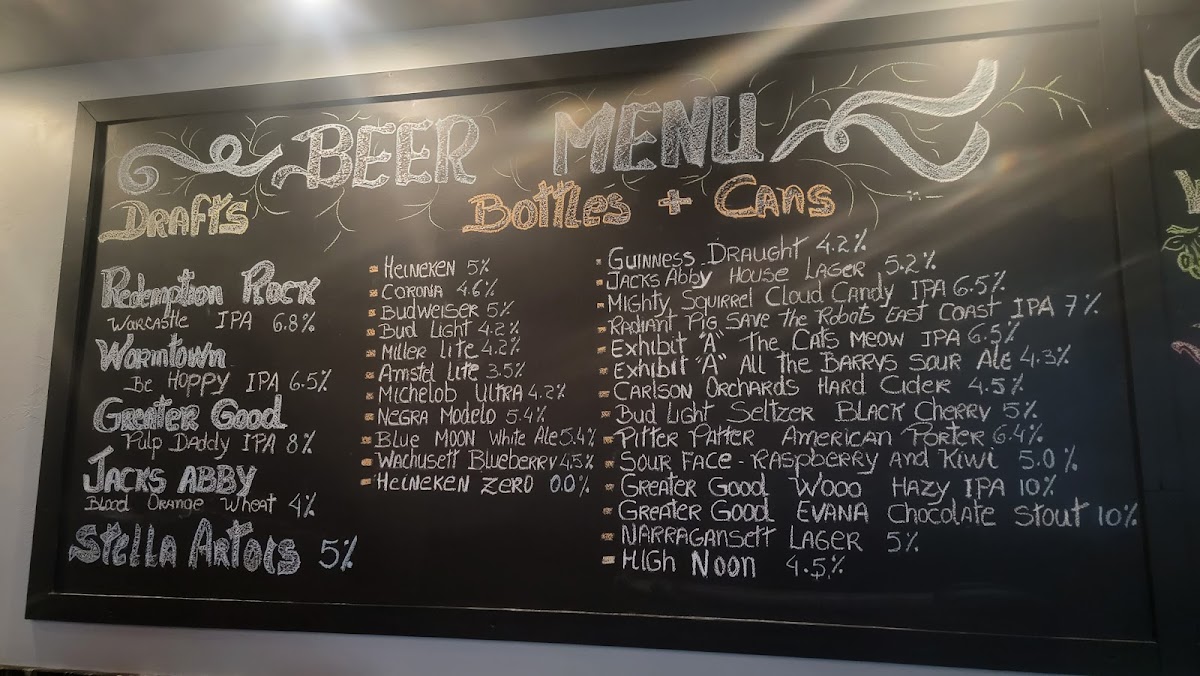 BEER MENU
DRAFTS
Redemption Rock
WARCASTLE IPA 6.8%
Wormtown
Be Hoppy IPA 6.5%
Greater Good
Pulp Daddy IPA 8%
JACKS ABBY
Blood Orange Wheat 4%
Stella Artois 5%
Bottles + Cans
Heineken 5%
CORONA 4.6%
BUDWEISER 5%
Bud Light 4.2%
Miller Lite 4.2%
Amstel Lite 3.5%
Michelob ULTRA 4.2%
Negra Modelo 5.4%
Blue MOON White Ale 5.4%
WACHUSETT BLUEBERRY 4.5%
Heineken ZERO 0.0%
GUINNESS DRAUGHT 4.2%
JACKS ABBY HOUSE LAGER 5.2%
MIGHTY SQUIRREL CLOUD CANDY IPA 6.5%
RADIANT PIG SAVE the RoBots EAST COAST IPA 7%
Exhibit "A" The CATS MEOW IPA 6.5%
Exhibit "A" All the BARRYS SOUR Ale 4.3%
CARLSON ORCHARDS HARD CIDER 4.5%
Bud Light Seltzer BLACK CHERRY 5%
PITTER PATTER AMERICAN PORTER 6.4%
SOUR FACE - RASPBERRY AND KIWI 5.0%
GREATER GOOD WOOO HAZY IPA 10%
GREATER GOOD EVANA Chocolate Stout 10%
NARRAGANSETT LAGER 5%
HIGH NOON 4.5%